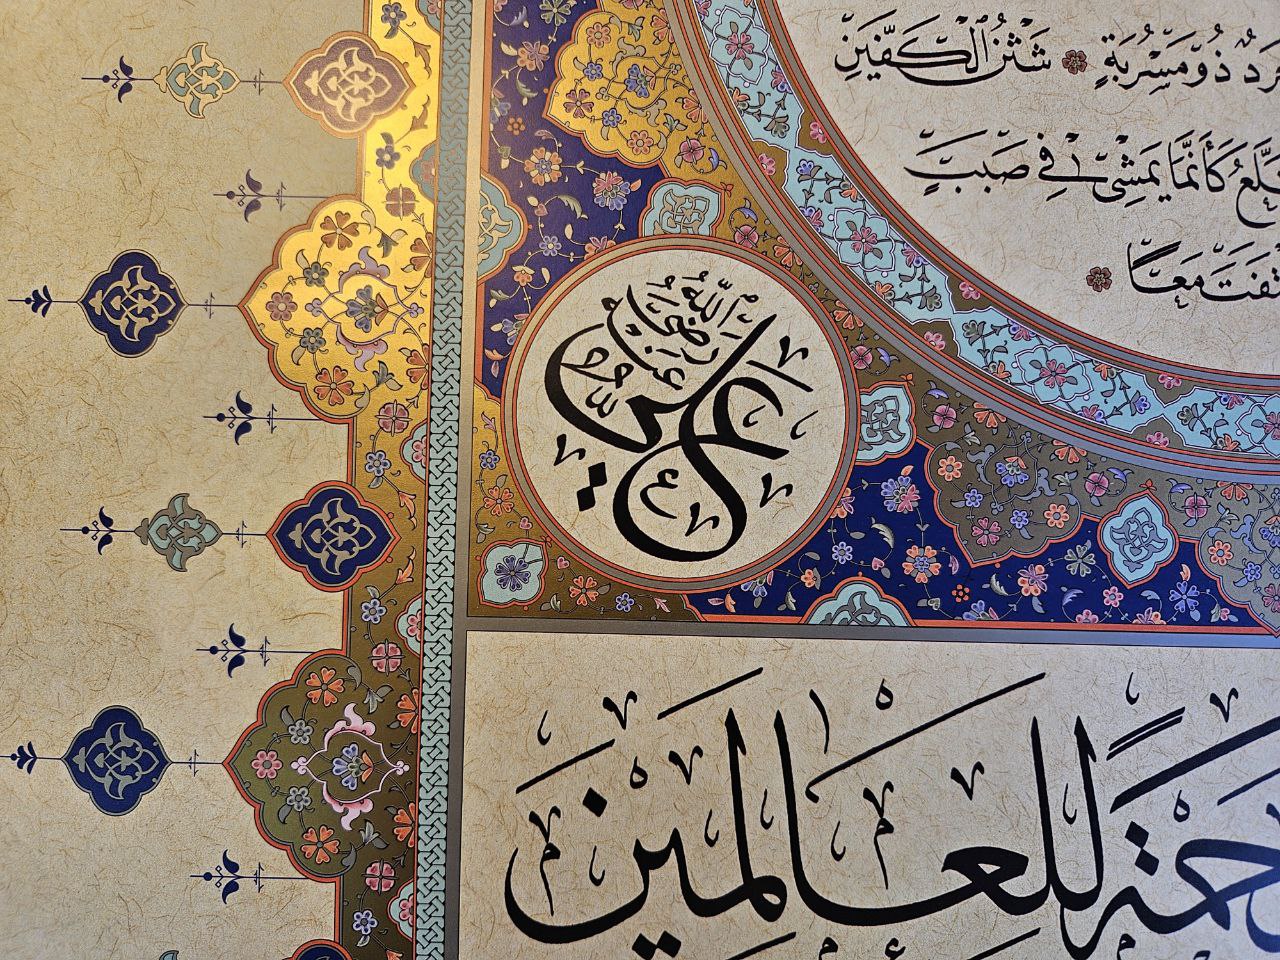 ذُو مَسْرُبَةٍ شَثْنُ الْكَفَّيْنِ
كَأَنَّمَا يَمْشِى فِي صَبَبٍ
مَعًا
عَلِي رَضِيَ اللّٰهُ عَنْهُ
لِلْعَالَمِينَ